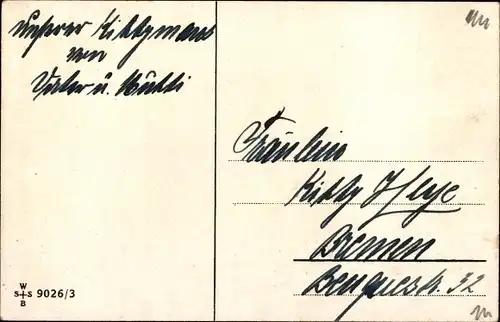 unserer Kittymaus
von
Vater u. Mutti
Fräulein
Kitty Heye
Bremen
Benquestr. 32
W
S S
B
9026/3